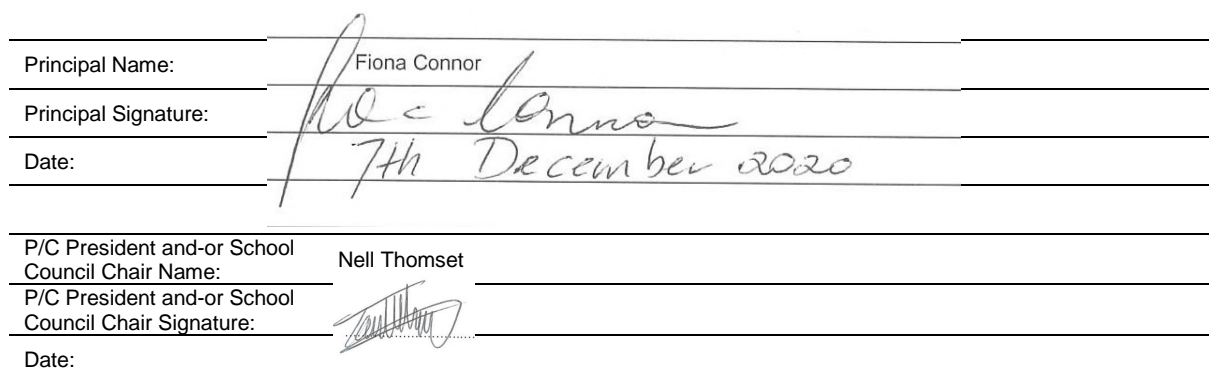 Principal Name: Fiona Connor
Principal Signature: Connor
Date: 7th December 2020
P/C President and-or School
Council Chair Name: Nell Thomset
P/C President and-or School
Council Chair Signature:
Date: